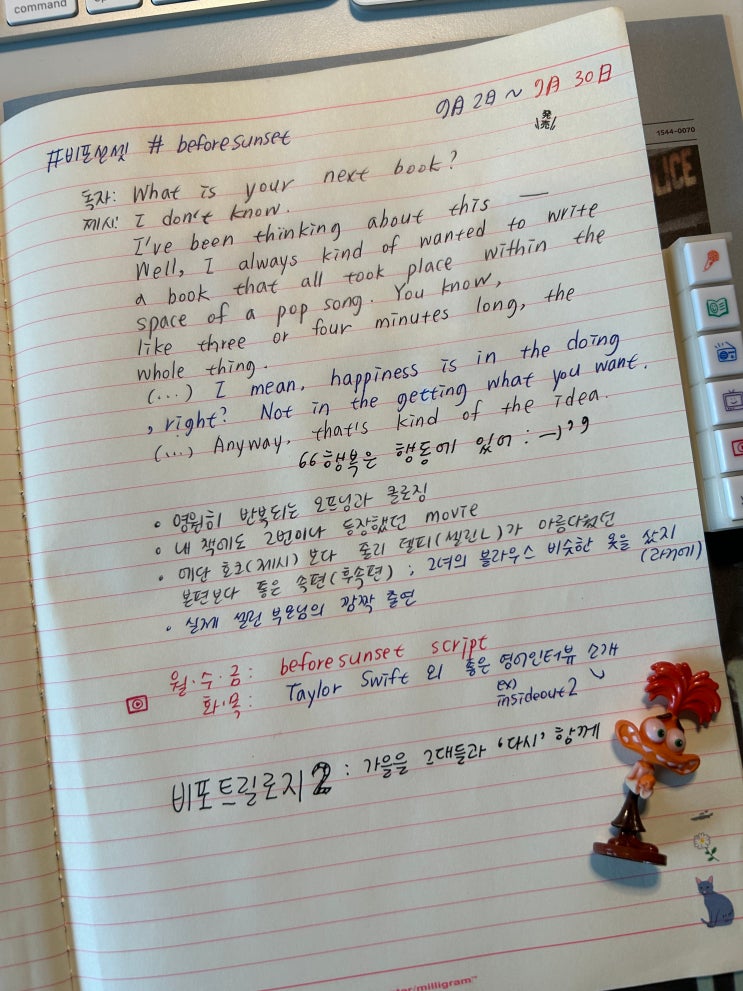 command
9月 2日 ~ 9月 30日
発売
1544-0070
#비포선셋 # beforesunset
독자: What is your next book?
제시: I don't know.
I've been thinking about this —
Well, I always kind of wanted to write
a book that all took place within the
space of a pop song. You know,
like three or four minutes long, the
whole thing.
(...) I mean, happiness is in the doing
, right? Not in the getting what you want.
(...) Anyway, that's kind of the idea.
66행복은 행동에 있어
• 영원히 반복되는 오프닝과 클로징
• 내 책에도 2번이나 등장했던 movie
• 에단 호크(제시)보다 줄리 델피(셀린느)가 아름다웠던
본편보다 좋은 속편(후속편) ; 그녀의 블라우스 비슷한 옷을 샀지
• 실제 셀린 부모님의 깜짝 출연
월·수·금: beforesunset script
화·목: Taylor Swift 외 좋은 영어인터뷰 소개
ex)
insideout2
비포트릴로지2 : 가을을 그대들과 '다시' 함께
milligram™